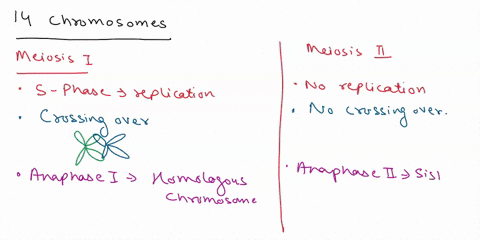 14 Chromosomes
Meiosis I
• S-Phase → replication
• Crossing over
• Anaphase I → Homologous
Chromosome
Meiosis II
• No replication
• No crossing over.
• Anaphase II → Sisl